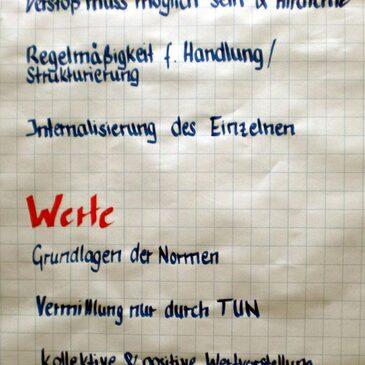 Verstoß muss möglich sein &
Regelmäßigkeit f. Handlung/
Strukturierung
Internalisierung des Einzelnen
Werte
Grundlagen der Normen
Vermittlung nur durch TUN
kollektive & positive Wertvorstellung